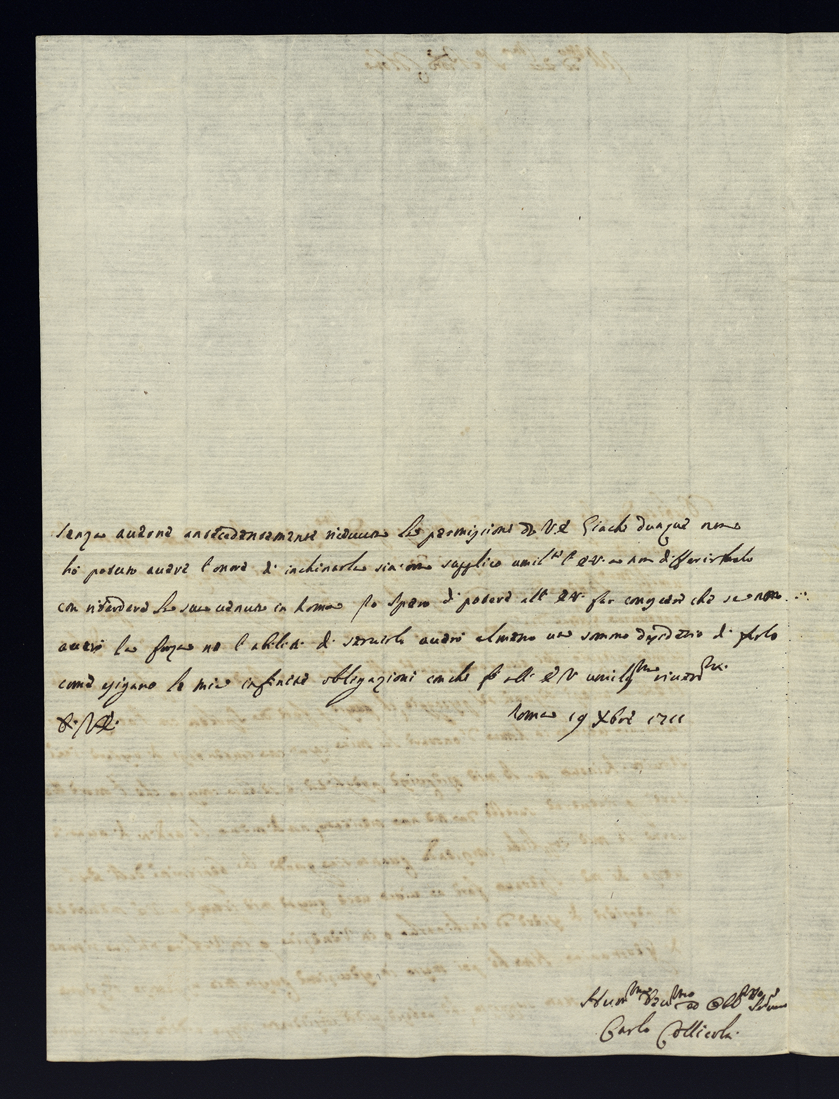 senza averne antecedentemente ricevuta la permissione da V.E. Giache dunque non
ho potuto avere l'onore di inchinarla siccome supplico umilte l'E.V. a non differirmelo
con ritardare la sua venuta in Roma Io spero di potere all' E.V. far conoscere che se non
avrò la forza ne l'abilità di servirlo avrò almeno un sommo desiderio di farlo
come esigano le mie infinite obligazioni con che fo all' E.V. umilisma riverza
D. V.E.
Roma 19 Xbre 1711
Humo Devmo ed Obbmo Serve
Carlo Collicola